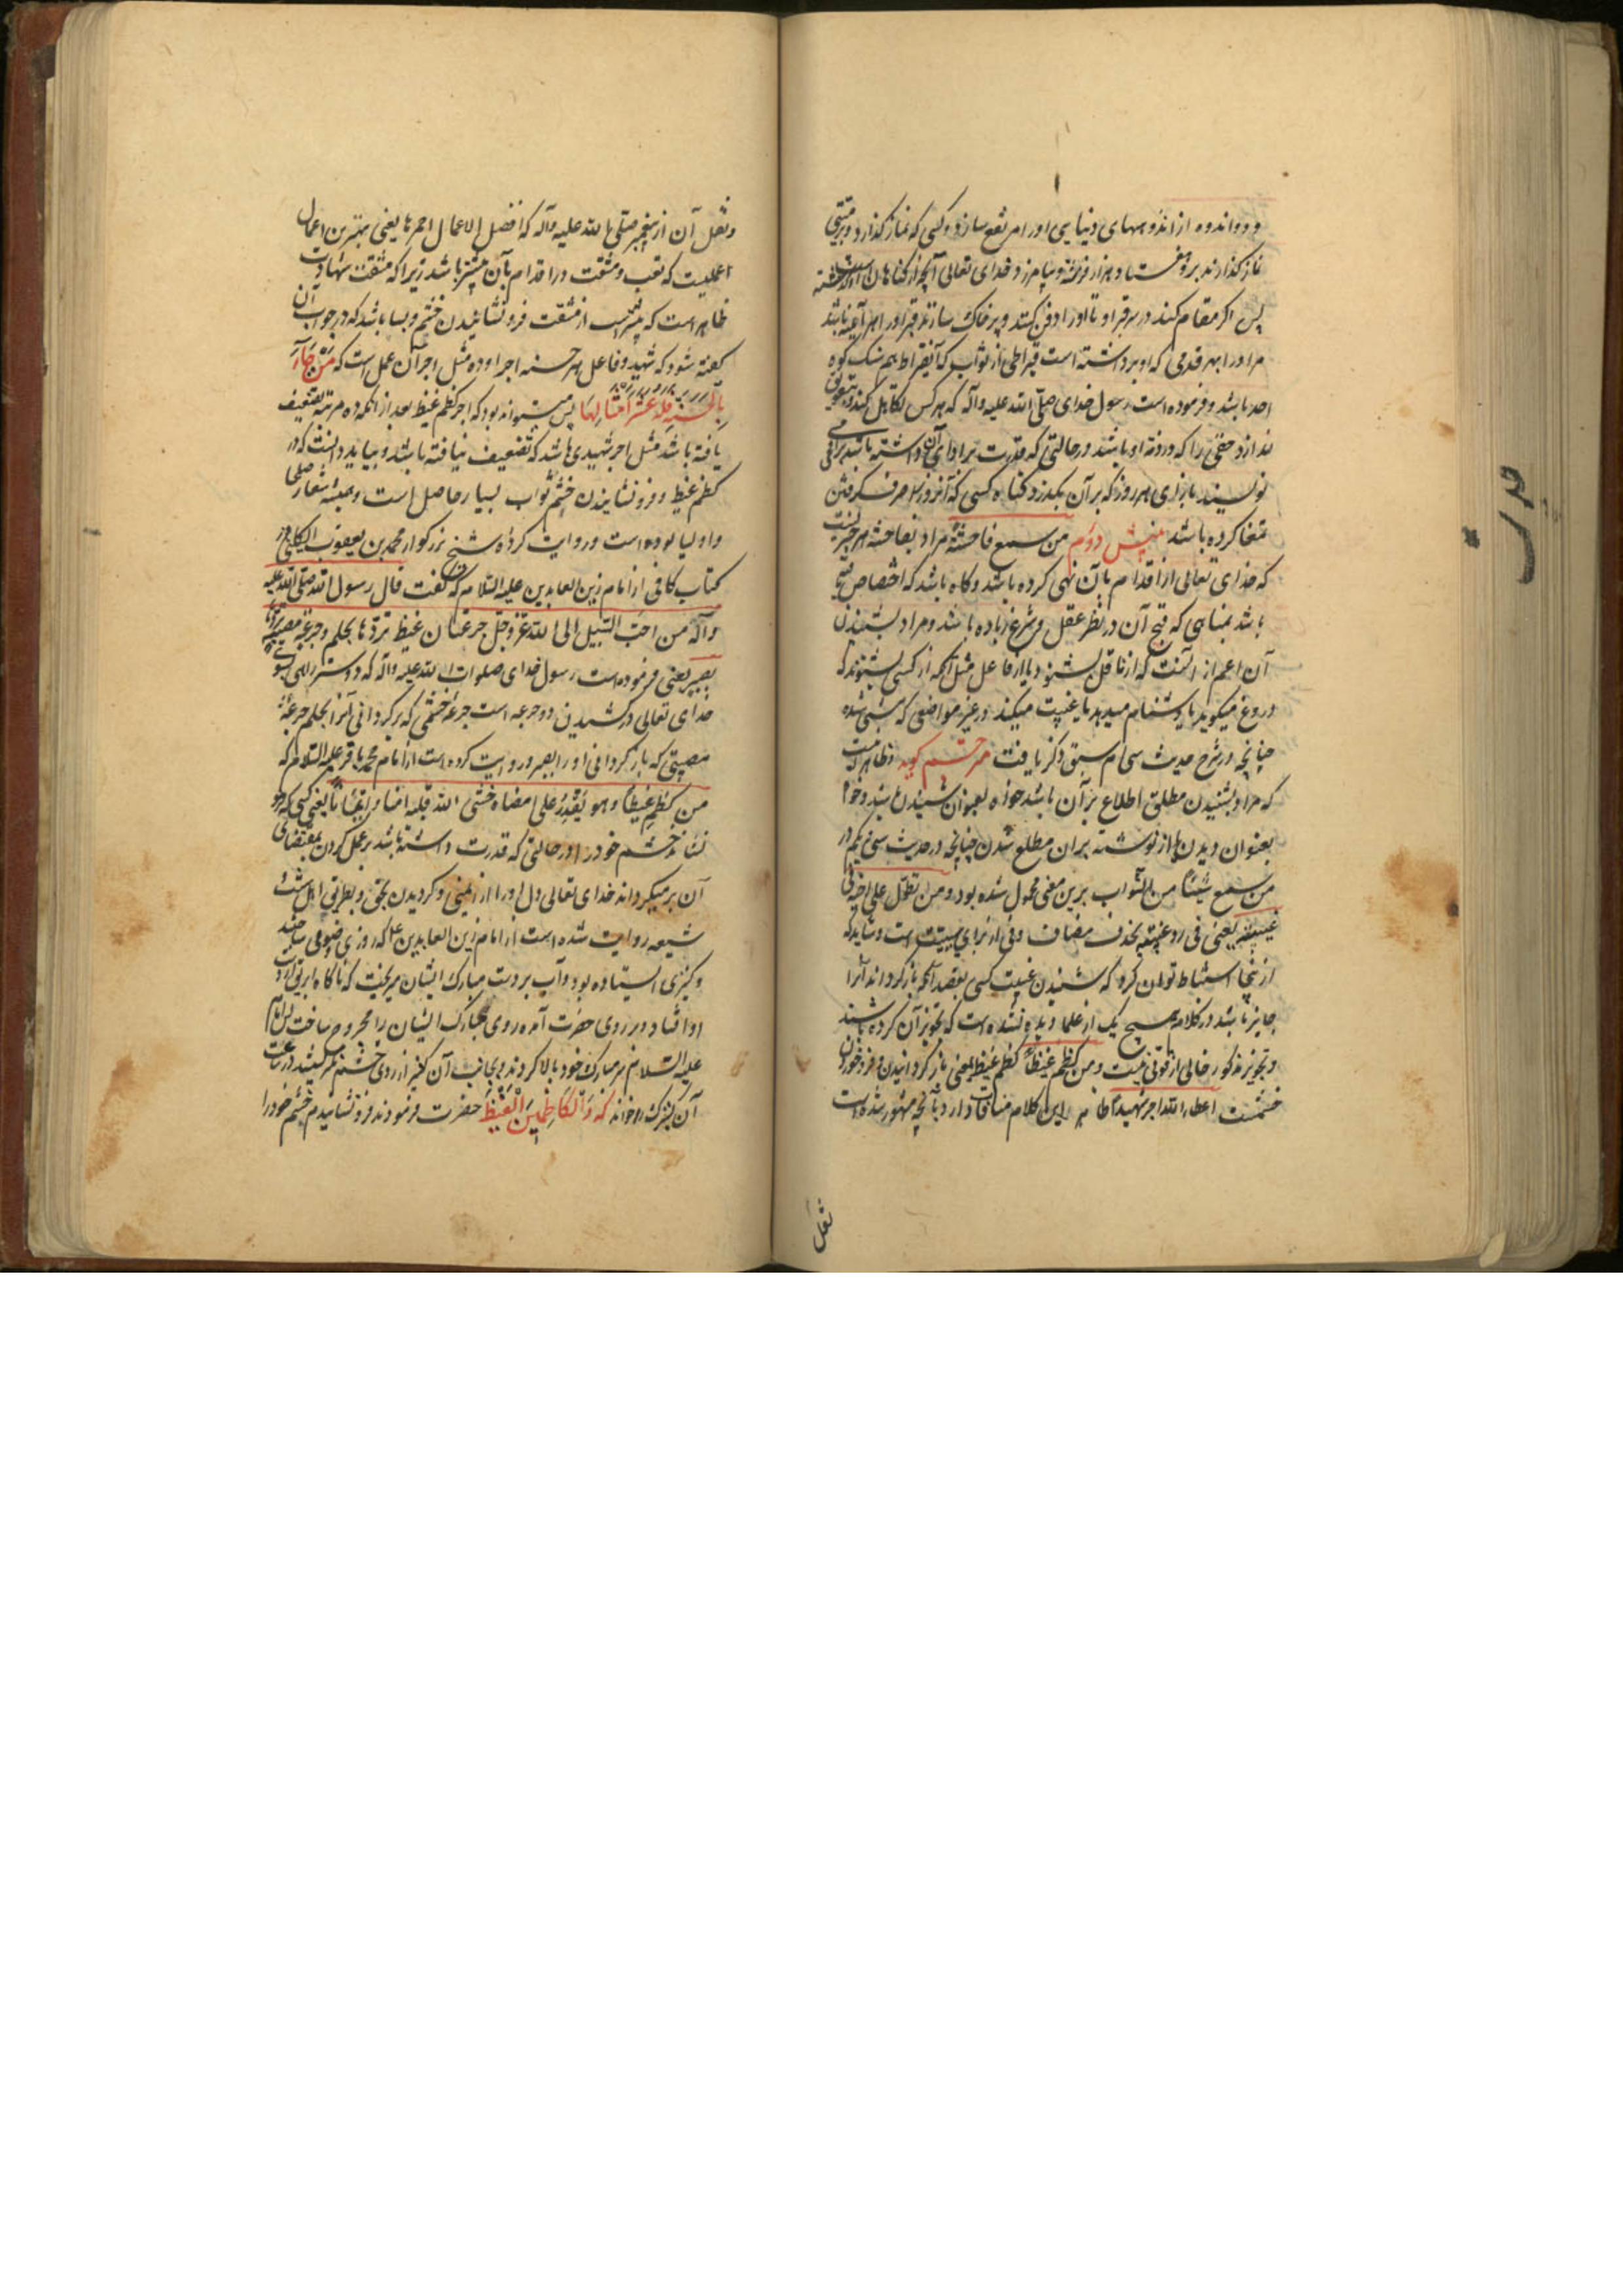 و دو اندوه از اندوههای دنیایی او را مرتفع سازد و کسی که نماز گذارد و بر میتی
نماز گذارند برو هفتاد هزار فرشته و بیامرزد خدای تعالی آنچه از گناهان او گذشته
پس اگر مقام کند در سر قبر او تا او را دفن کنند و پر خاک سازند قبر او را هر آینه باشد
مر او را بهر قدمی که او برداشته است قیراطی از ثواب که آنقیراط بهم سنگ کوه
احد باشد و فرموده است رسول خدای صلی الله علیه و آله که هر کس تکاهل کند و بتعویق
اندازد حقی را که در ذمه او باشد در حالتی که قدرت بر ادای آن داشته باشد
نویسند بازای هر روز که بر آن بگذرد گناه کسی که آنروز را صرف گرفتن
تمغا کرده باشد بینش دوم من سمع فاحشة مراد بفاحشه هر چیزیست
که خدای تعالی از اقدام بآن نهی کرده باشد و گاه باشد که اختصاص
باشد بمناهی که قبح آن در نظر عقل و شرع زیاده باشد و مراد بشنیدن
آن اعم از آنست که از ناقل بشنود یا از فاعل مثل آنکه از کسی بشنوند که
دروغ میگوید یا دشنام میدهد یا غیبت میکند در غیر مواضعی که مستثنی شده
چنانچه در شرح حدیث سی ام سبق ذکر یافت مترجم گوید ظاهر آنست
که مراد بشنیدن مطلق اطلاع بر آن باشد خواه بعنوان شنیدن باشد و خواه
بعنوان دیدن یا از نوشته بران مطلع شدن چنانچه در حدیث سی و یکم در
من سمع شیئا من الثواب برین معنی محمول شده بود و من تطول علی اخیه فی
غیبته یعنی فی رد غیبته بحذف مضاف و فی از برای سببیت است و شاید که
ازینجا استنباط توان کرد که شنیدن غیبت کسی بقصد آنکه باز گرداند آنرا
جایز باشد در کلام هیچ یک از علما دیده نشده است که تجویز آن کرده باشند
و تجویز مذکور خالی از قوتی نیست و من کظم غیظا کظم غیظ بمعنی باز گردانیدن و فرو خوردن
خشمست اعطاه الله اجر شهید ظاهر این کلام منافات دارد بآنچه مشهور شده است
نقل
و نقل آن از پیغمبر صلی الله علیه و آله که افضل الاعمال احمزها یعنی بهترین اعمال
عملیست که تعب و مشقت در اقدام بآن بیشتر باشد زیرا که مشقت شهادت
ظاهر است که بیشتر است از مشقت فرو نشانیدن خشم و بسا باشد که در جواب آن
گفته شود که شهید و فاعل هر حسنه اجر او ده مثل اجر آن عمل است که مَنْ جَآءَ
بِالْحَسَنَةِ فَلَهُ عَشْرُ اَمْثَالِهَا پس میتواند بود که اجر کظم غیظ بعد از آنکه ده مرتبه تضعیف
یافته باشد مثل اجر شهیدی باشد که تضعیف نیافته باشد و بباید دانست که در
کظم غیظ و فرو نشانیدن خشم ثواب بسیار حاصل است و همیشه شعار صلحا
و اولیا بوده است و روایت کرده شیخ بزرگوار محمد بن یعقوب الکلینی در
کتاب کافی از امام زین العابدین علیه السلام که گفت قال رسول الله صلی الله علیه
و آله من احب السبیل الی الله عز و جل جرعتان غیظ تردها بحلم و جرعة مصیبة تردها
بصبر یعنی فرموده است رسول خدای صلوات الله علیه و آله که دوستترین راهی بسوی
خدای تعالی در کشیدن دو جرعه است جرعه خشمی که بر گردانی آنرا بحلم و جرعه
مصیبتی که باز گردانی او را بصبر و روایت کرده است از امام محمد باقر علیه السلام که
من کظم غیظا و هو یقدر علی امضاه حشی الله قلبه امنا و ایمانا یعنی کسی که فرو
نشاند خشم خود را در حالتی که قدرت داشته باشد بر عمل کردن بمقتضای
آن بر میگرداند خدای تعالی دل او را از ایمنی و گرویدن بحق و بطریق اهل سنت و
شیعه روایت شده است از امام زین العابدین ع که روزی وضوء می ساختند
و کنیزی ایستاده بود و آب بر دست مبارک ایشان میریخت که ناگاه ابریق از دست
او افتاد و بر روی حضرت آمده روی مبارک ایشان را مجروح ساخت پس امام
علیه السلام سر مبارک خود بالا کردند و بجانب آن کنیز از روی خشم نگریستند در ساعت
آن کنیزک خواند که وَالْكَاظِمِينَ الْغَيْظَ حضرت فرمودند فرو نشانیدم خشم خود را